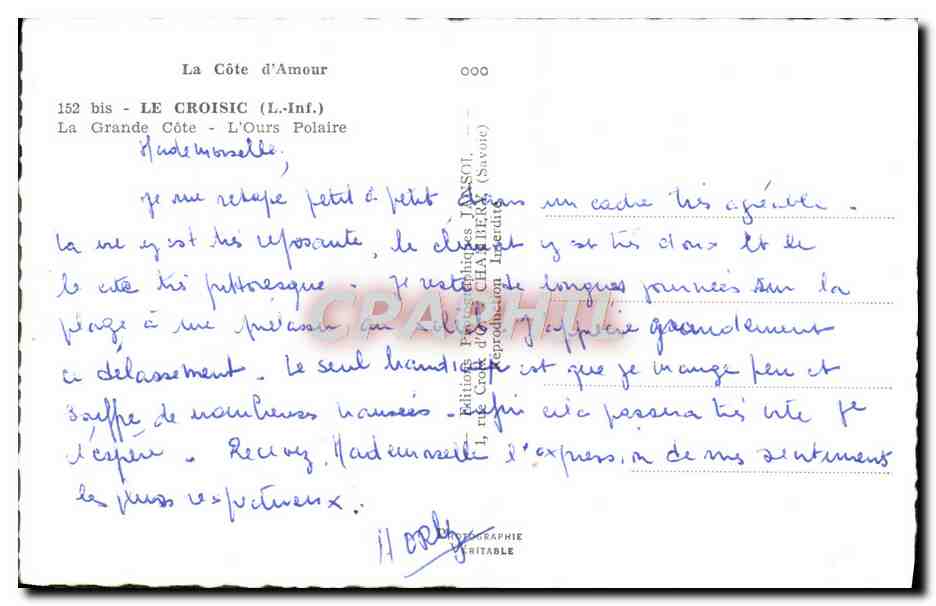 La Côte d'Amour
152 bis - LE CROISIC (L.-Inf.)
La Grande Côte - L'Ours Polaire
Mademoiselle,
Je me retape petit à petit dans un cadre très agréable.
La vie y est très reposante, le climat y est très doux et le
le site très pittoresque. Je reste de longues journées sur la
plage à me prélasser au soleil. J'apprécie grandement
ce délassement. Le seul handicap est que je mange peu et
souffre de nombreuses nausées. cela passera très vite je
l'espère. Recevez, Mademoiselle l'expression de mes sentiments
les plus respectueux.
ooo
Editions Photographiques JANSOL
1, rue Croix d'Or CHAMBERY (Savoie)
Reproduction Interdite
PHOTOGRAPHIE
VÉRITABLE
CPARHTI